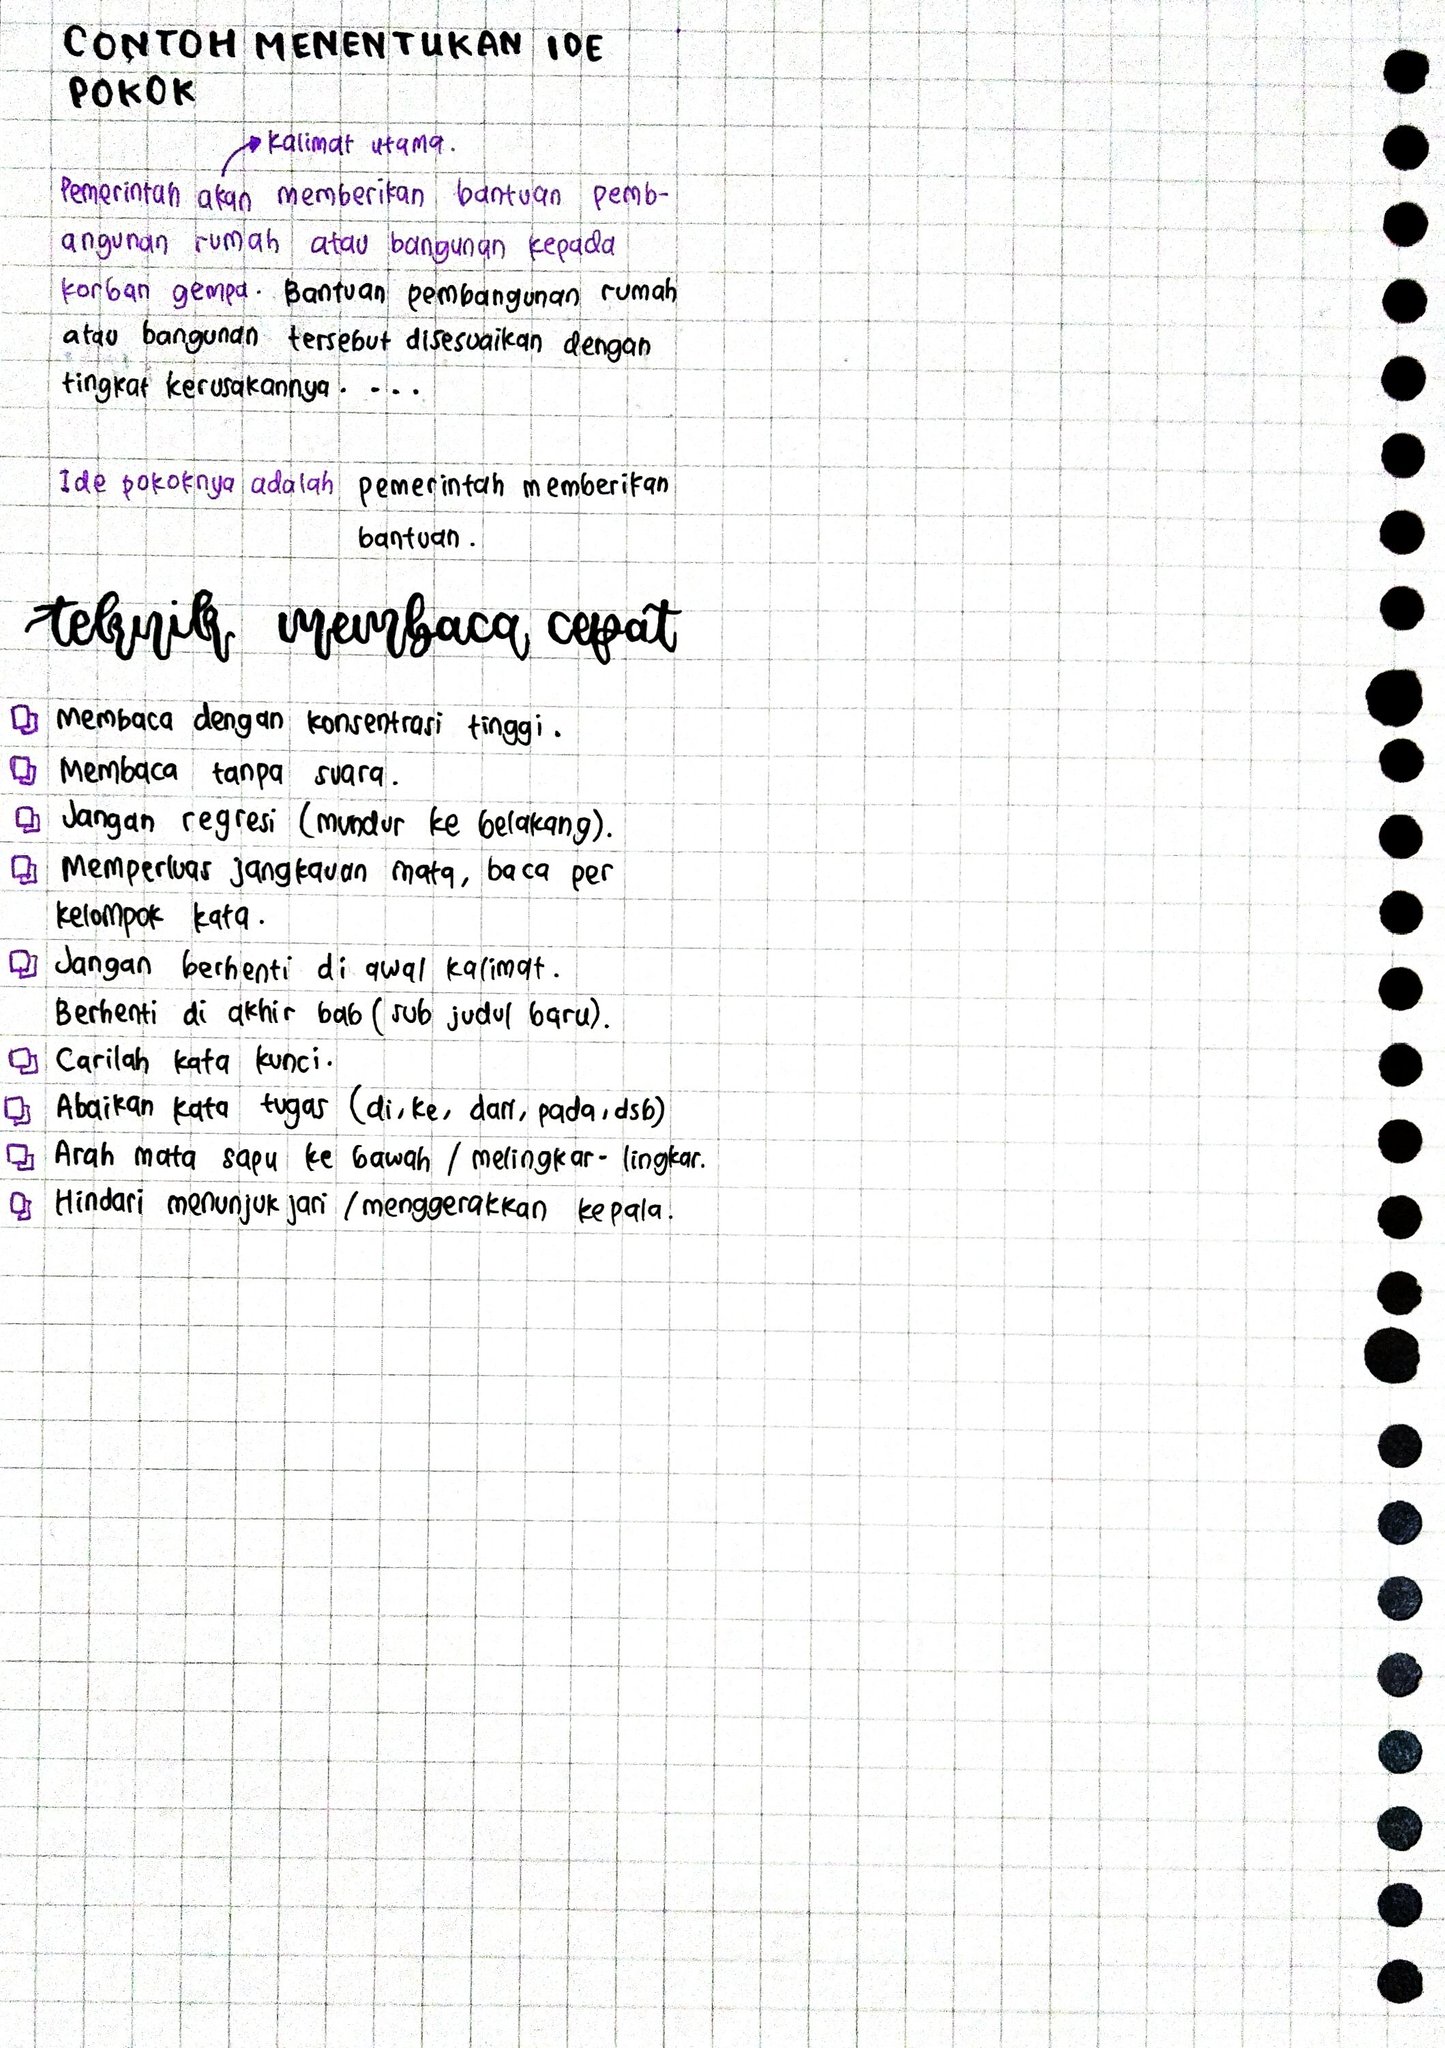 CONTOH MENENTUKAN IDE
POKOK
Kalimat utama.
Pemerintah akan memberikan bantuan pemb-
angunan rumah atau bangunan kepada
korban gempa. Bantuan pembangunan rumah
atau bangunan tersebut disesuaikan dengan
tingkat kerusakannya. ...
Ide pokoknya adalah pemerintah memberikan
bantuan.
teknik membaca cepat
Membaca dengan konsentrasi tinggi.
Membaca tanpa suara.
Jangan regresi (mundur ke belakang).
Memperluas jangkauan mata, baca per
kelompok kata.
Jangan berhenti di awal kalimat.
Berhenti di akhir bab (sub judul baru).
Carilah kata kunci.
Abaikan kata tugas (di, ke, dari, pada, dsb)
Arah mata sapu ke bawah / melingkar-lingkar.
Hindari menunjuk jari / menggerakkan kepala.